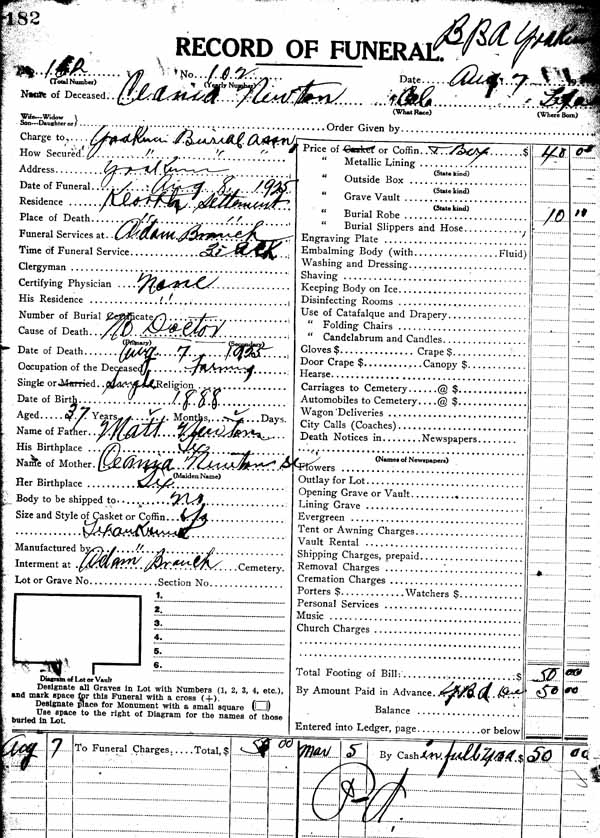 182
B B A Yoakum
RECORD OF FUNERAL.
No. 182 No. 102 Date Aug 7
(Total Number) (Yearly Number)
Name of Deceased Newton Col
(What Race) (Where Born)
Wife—Widow
Son—Daughter of
Order Given by
Charge to Yoakum Burial Assn
How Secured " " "
Address Yoakum
Date of Funeral Aug 8, 1925
Residence Settlement
Place of Death " "
Funeral Services at Adam Branch
Time of Funeral Service
Clergyman
Certifying Physician None
His Residence "
Number of Burial Certificate
Cause of Death No Doctor
(Primary) (Secondary)
Date of Death Aug 7 1925
Occupation of the Deceased farming
Single or Married Single Religion
Date of Birth 1888
Aged 37 Years Months, Days.
Name of Father Matt Newton
His Birthplace Tex
Name of Mother Newton
(Maiden Name)
Her Birthplace Tex
Body to be shipped to no
Size and Style of Casket or Coffin
Manufactured by
Interment at Adam Branch Cemetery.
Lot or Grave No. Section No.
1.
2.
3.
4.
5.
6.
Diagram of Lot or Vault
Designate all Graves in Lot with Numbers (1, 2, 3, 4, etc.),
and mark space for this Funeral with a cross (+).
Designate place for Monument with a small square (☐)
Use space to right of Diagram for the names of those
buried in Lot.
Price of Casket or Coffin & Box $ 40 00
" Metallic Lining
(State kind)
" Outside Box
(State kind)
" Grave Vault
(State kind)
" Burial Robe 10 "
" Burial Slippers and Hose
Engraving Plate
Embalming Body (with Fluid)
Washing and Dressing
Shaving
Keeping Body on Ice
Disinfecting Rooms
Use of Catafalque and Drapery
" Folding Chairs
" Candelabrum and Candles
Gloves $ Crape $
Door Crape $ Canopy $
Hearse
Carriages to Cemetery @ $
Automobiles to Cemetery @ $
Wagon Deliveries
City Calls (Coaches)
Death Notices in Newspapers
(Names of Newspapers)
Flowers
Outlay for Lot
Opening Grave or Vault
Lining Grave
Evergreen
Tent or Awning Charges
Vault Rental
Shipping Charges, prepaid
Removal Charges
Cremation Charges
Porters $ Watchers $
Personal Services
Music
Church Charges
Total Footing of Bill $ 50 00
By Amount Paid in Advance 50 00
Balance
Entered into Ledger, page or below
Aug 7 To Funeral Charges Total, $ 50 00
Mar 5 By Cash in full $ 50 00